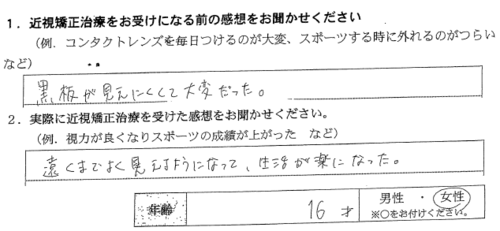 1．近視矯正治療をお受けになる前の感想をお聞かせください
（例．コンタクトレンズを毎日つけるのが大変、スポーツする時に外れるのがつらい
など）
黒板が見えにくくて大変だった。
2．実際に近視矯正治療を受けた感想をお聞かせください。
（例．視力が良くなりスポーツの成績が上がった　など）
遠くまでよく見えるようになって、生活が楽になった。
年齢　16才　男性・女性
※○をお付けください。